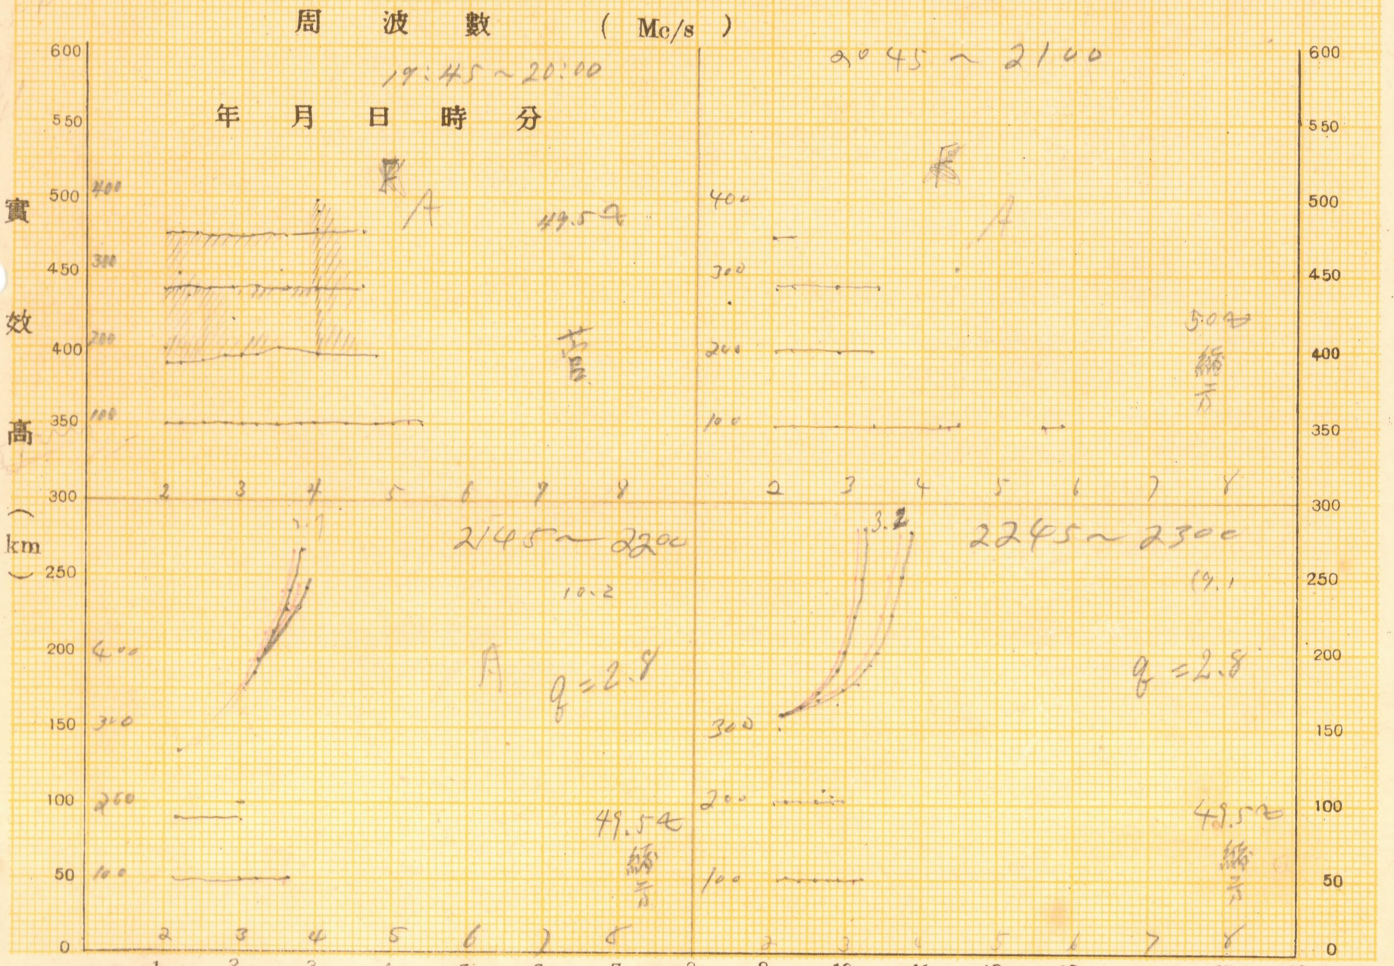 周 波 數 ( Mc/s )
19:45 ~ 20:00
2045 ~ 2100
年 月 日 時 分
實效高(km)
600
550
500
450
400
350
300
250
200
150
100
50
0
600
550
500
450
400
350
300
250
200
150
100
50
0
400
300
200
100
A
49.5
2 3 4 5 6 7 8
400
300
200
100
A
50
2 3 4 5 6 7 8
2145 ~ 2200
10.2
A
q = 2.8
400
300
200
100
49.5
2 3 4 5 6 7 8
3.2
2245 ~ 2300
q = 2.8
300
200
100
49.5
2 3 4 5 6 7 8